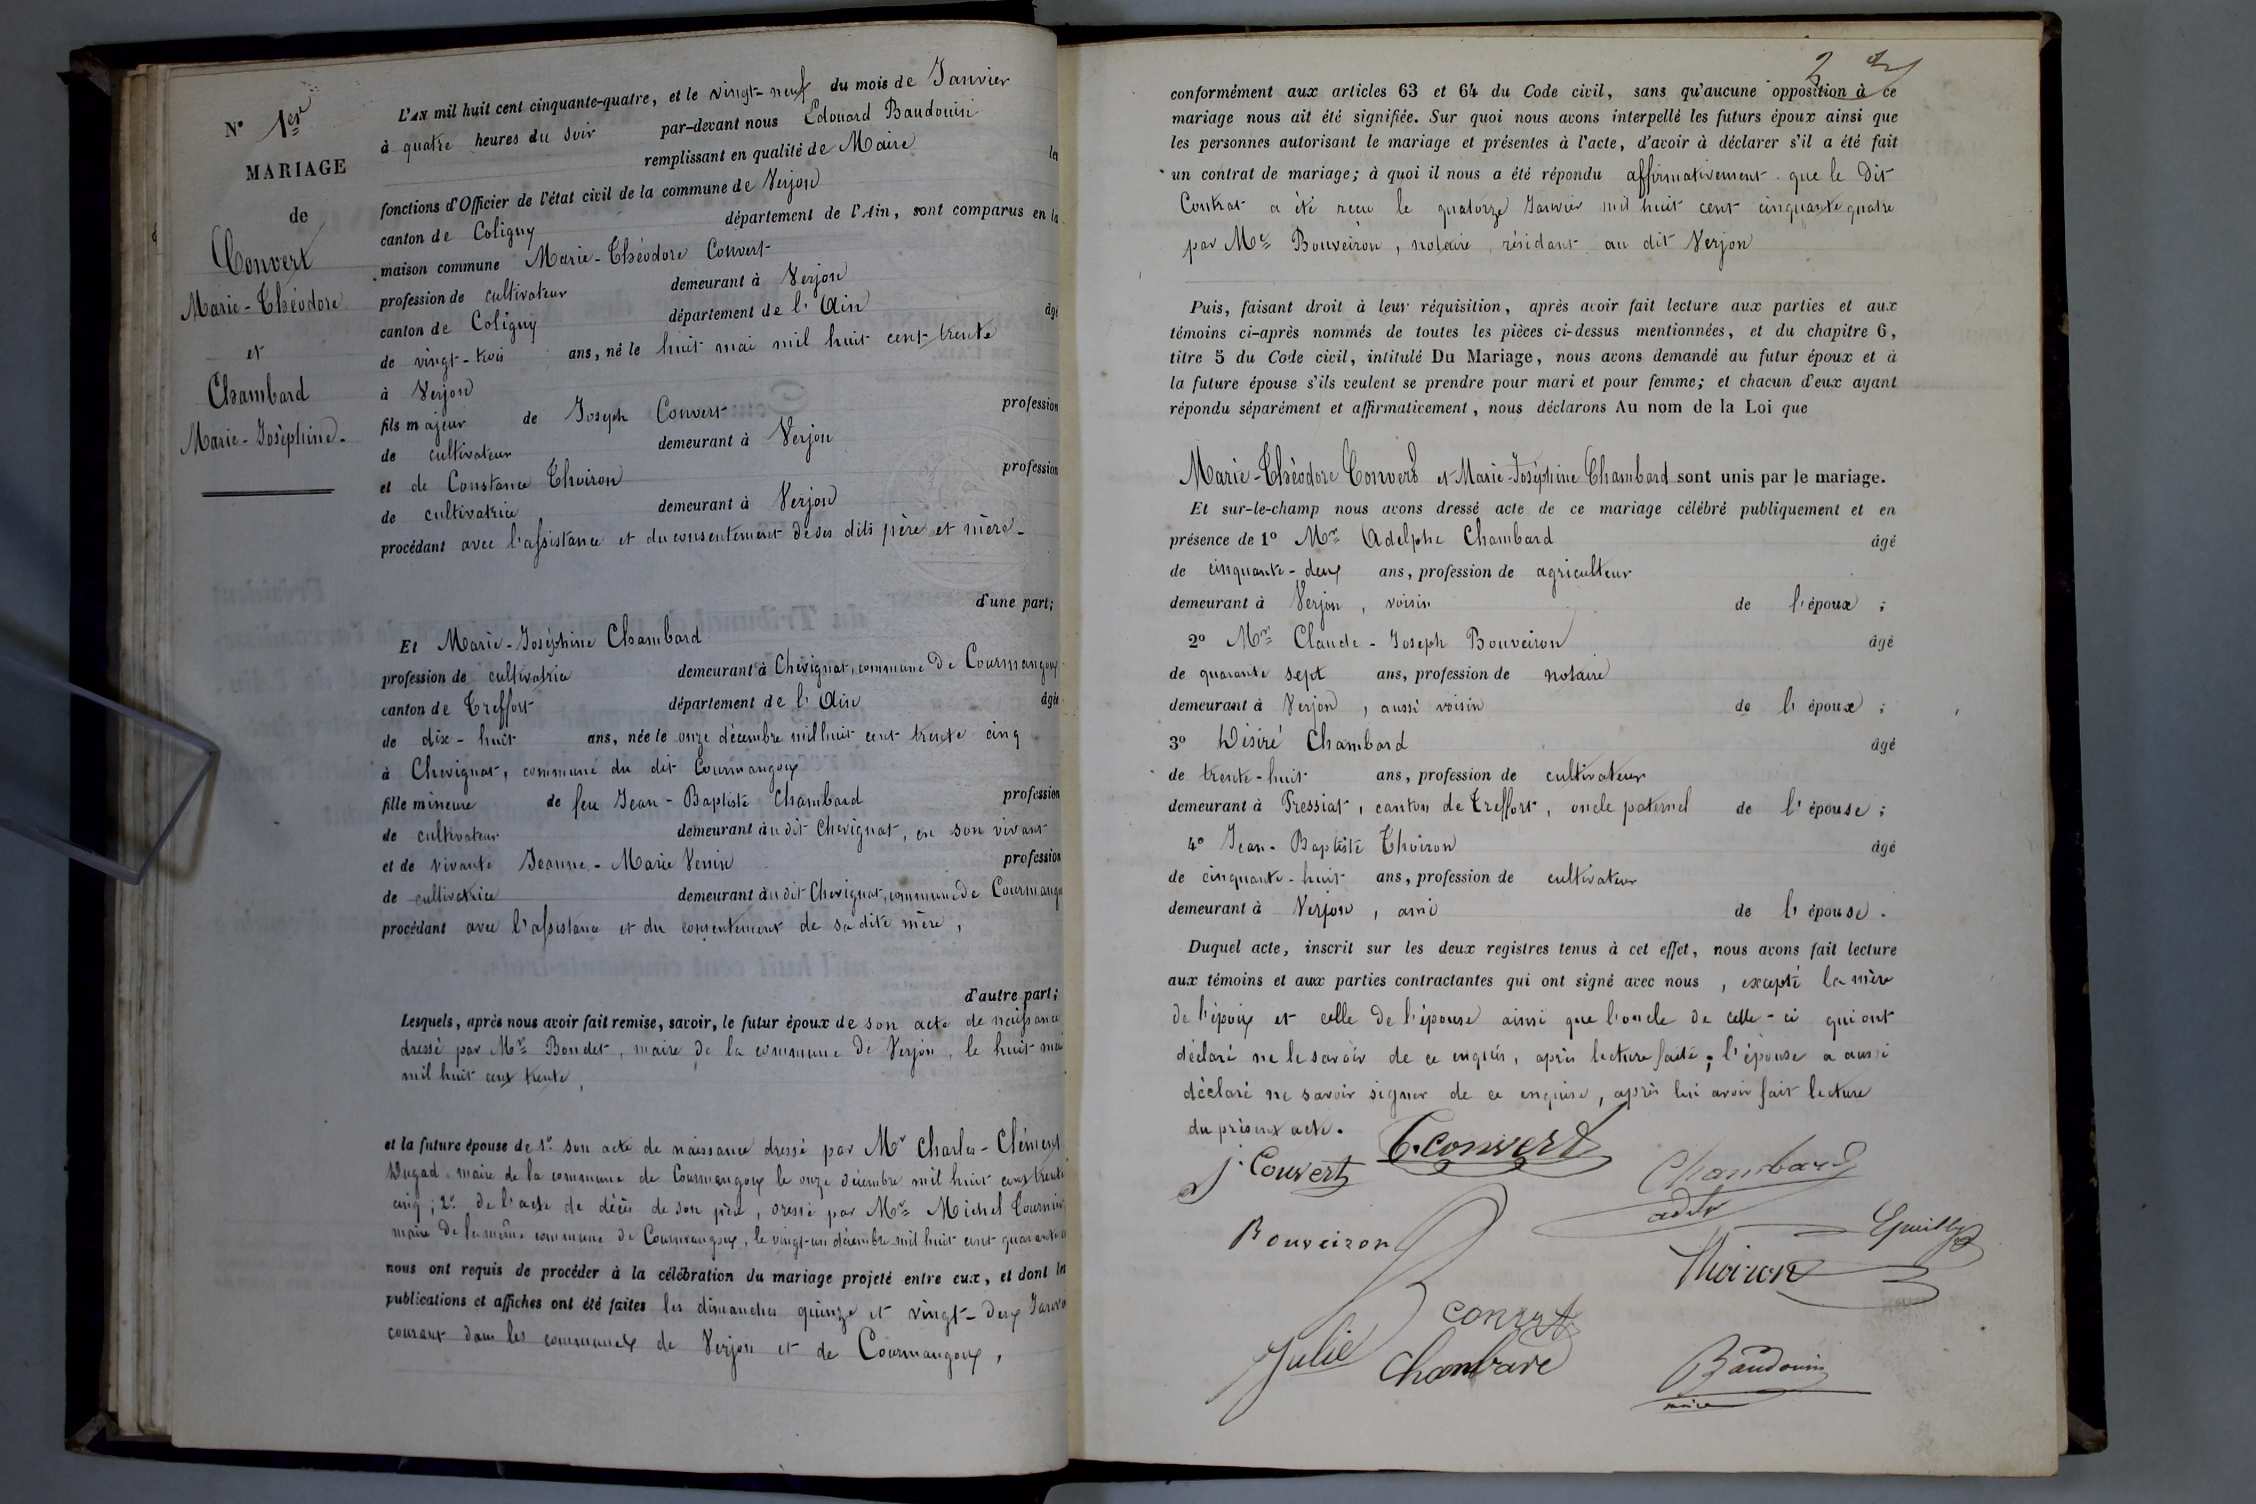 N° 1er
MARIAGE
de
Convert
Marie-Théodore
et
Chambard
Marie-Joséphine.
L'AN mil huit cent cinquante-quatre, et le vingt-neuf du mois de Janvier
à quatre heures du soir par-devant nous Edouard Baudouin
remplissant en qualité de Maire les
fonctions d'Officier de l'état civil de la commune de Verjon
canton de Coligny département de l'Ain, sont comparus en la
maison commune Marie-Théodore Convert
profession de cultivateur demeurant à Verjon
canton de Coligny département de l'Ain âgé
de vingt-trois ans, né le huit mai mil huit cent trente
à Verjon
fils majeur de Joseph Convert profession
de cultivateur demeurant à Verjon
et de Constance Thoiron profession
de cultivatrice demeurant à Verjon
procédant avec l'assistance et du consentement de ses dits père et mère-
d'une part;
Et Marie-Joséphine Chambard
profession de cultivatrice demeurant à Chevignat, commune de Courmangoux
canton de Treffort département de l'Ain âgée
de dix-huit ans, née le onze décembre mil huit cent trente cinq
à Chevignat, commune du dit Courmangoux
fille mineure de feu Jean-Baptiste Chambard profession
de cultivateur demeurant au dit Chevignat, en son vivant
et de vivante Jeanne-Marie Venin profession
de cultivatrice demeurant au dit Chevignat, commune de Courmangou
procédant avec l'assistance et du consentement de sa dite mère,
d'autre part;
Lesquels, après nous avoir fait remise, savoir, le futur époux de son acte de naissance
dressé par Mr Bondet, maire de la commune de Verjon, le huit mai
mil huit cent trente,
et la future épouse de 1° son acte de naissance dressé par Mr Charles-Clément
Dugad, maire de la commune de Courmangoux le onze décembre mil huit cent trente
cinq; 2° de l'acte de décès de son père, dressé par Mr Michel Tournier
maire de la même commune de Courmangoux, le vingt-un décembre mil huit cent quarante
nous ont requis de procéder à la célébration du mariage projeté entre eux, et dont les
publications et affiches ont été faites les dimanches quinze et vingt-deux Janvier
courant dans les communes de Verjon et de Courmangoux,
2
conformément aux articles 63 et 64 du Code civil, sans qu'aucune opposition à ce
mariage nous ait été signifiée. Sur quoi nous avons interpellé les futurs époux ainsi que
les personnes autorisant le mariage et présentes à l'acte, d'avoir à déclarer s'il a été fait
un contrat de mariage; à quoi il nous a été répondu affirmativement que le dit
Contrat a été reçu le quatorze Janvier mil huit cent cinquante quatre
par Me Bouveiron, notaire résidant au dit Verjon
Puis, faisant droit à leur réquisition, après avoir fait lecture aux parties et aux
témoins ci-après nommés de toutes les pièces ci-dessus mentionnées, et du chapitre 6,
titre 5 du Code civil, intitulé Du Mariage, nous avons demandé au futur époux et à
la future épouse s'ils veulent se prendre pour mari et pour femme; et chacun d'eux ayant
répondu séparément et affirmativement, nous déclarons Au nom de la Loi que
Marie-Théodore Convert et Marie-Joséphine Chambard sont unis par le mariage.
Et sur-le-champ nous avons dressé acte de ce mariage célébré publiquement et en
présence de 1° Mr Adelphe Chambard âgé
de cinquante-deux ans, profession de agriculteur
demeurant à Verjon, voisin de l'époux;
2° Mr Claude-Joseph Bouveiron âgé
de quarante sept ans, profession de notaire
demeurant à Verjon, aussi voisin de l'époux;
3° Désiré Chambard âgé
de trente-huit ans, profession de cultivateur
demeurant à Pressiat, canton de Treffort, oncle paternel de l'épouse;
4° Jean-Baptiste Thoiron âgé
de cinquante-huit ans, profession de cultivateur
demeurant à Verjon, ami de l'épouse.
Duquel acte, inscrit sur les deux registres tenus à cet effet, nous avons fait lecture
aux témoins et aux parties contractantes qui ont signé avec nous, excepté la mère
de l'époux et celle de l'épouse ainsi que l'oncle de celle-ci qui ont
déclaré ne le savoir de ce enquis, après lecture faite; l'épouse a aussi
déclaré ne savoir signer de ce enquise, après lui avoir fait lecture
du présent acte.
J. Convert T. Convert Chambard
adel
Bouveiron
Thoiron
Convert
Julie Chambard
Baudouin
maire